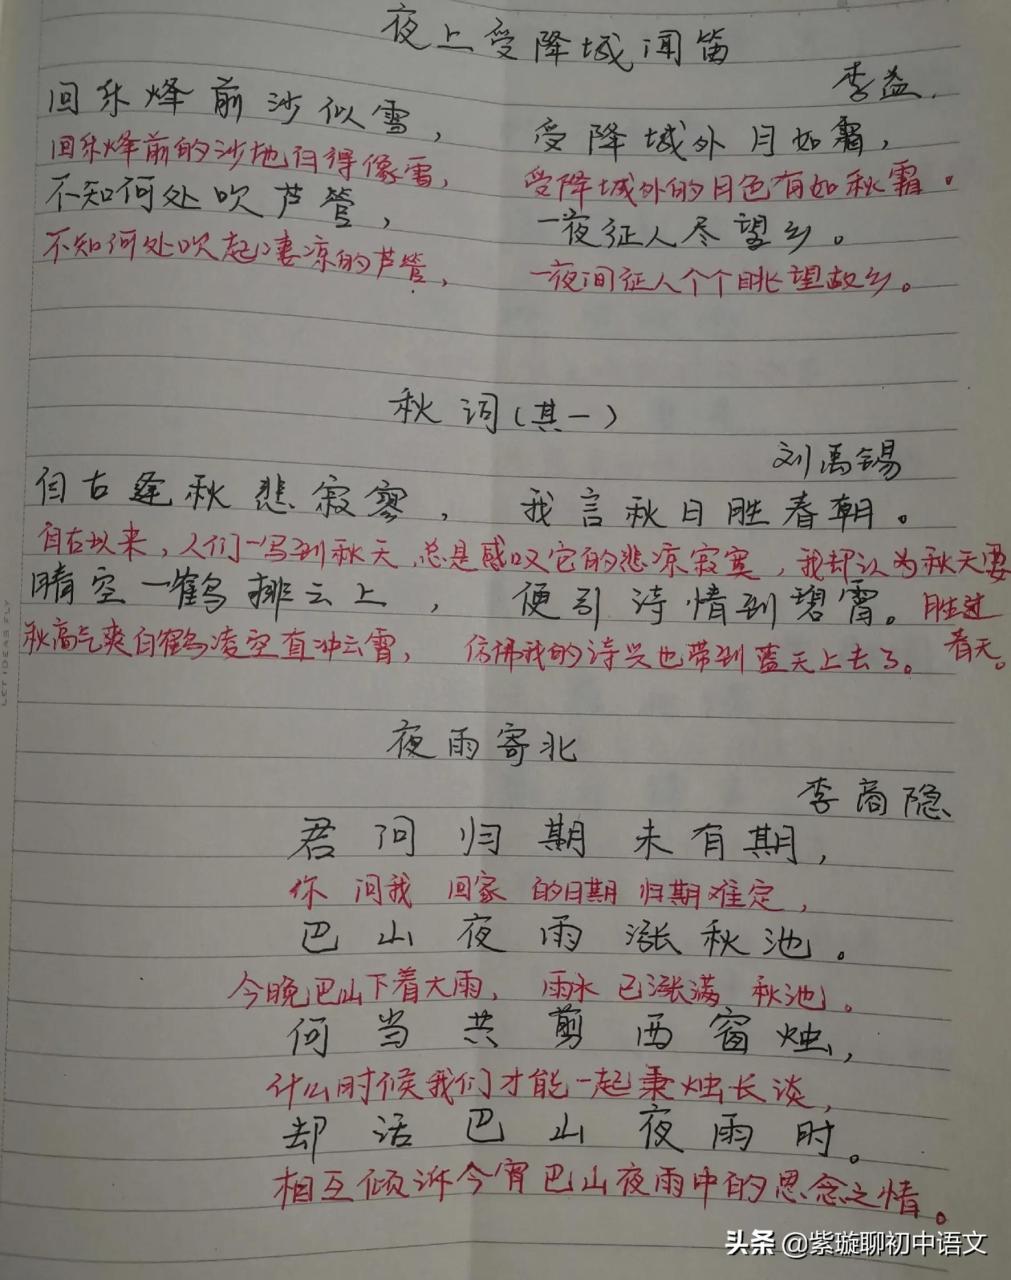 夜上受降城闻笛
李益.
回乐烽前沙似雪, 受降城外月如霜,
回乐烽前的沙地白得像雪, 受降城外的月色有如秋霜。
不知何处吹芦管, 一夜征人尽望乡。
不知何处吹起凄凉的芦管, 一夜间征人个个眺望故乡。
秋词(其一)
刘禹锡
自古逢秋悲寂寥, 我言秋日胜春朝。
自古以来,人们一写到秋天,总是感叹它的悲凉寂寞,我却认为秋天要
胜过
春天。
晴空一鹤排云上, 便引诗情到碧霄。
秋高气爽白鹤凌空直冲云霄, 仿佛我的诗兴也带到蓝天上去了。
夜雨寄北
李商隐
君问归期未有期,
你问我回家的日期归期难定,
巴山夜雨涨秋池。
今晚巴山下着大雨,雨水已涨满秋池。
何当共剪西窗烛,
什么时候我们才能一起秉烛长谈,
却话巴山夜雨时。
相互倾诉今宵巴山夜雨中的思念之情。
LET IDEAS FLY
头条 @紫璇聊初中语文